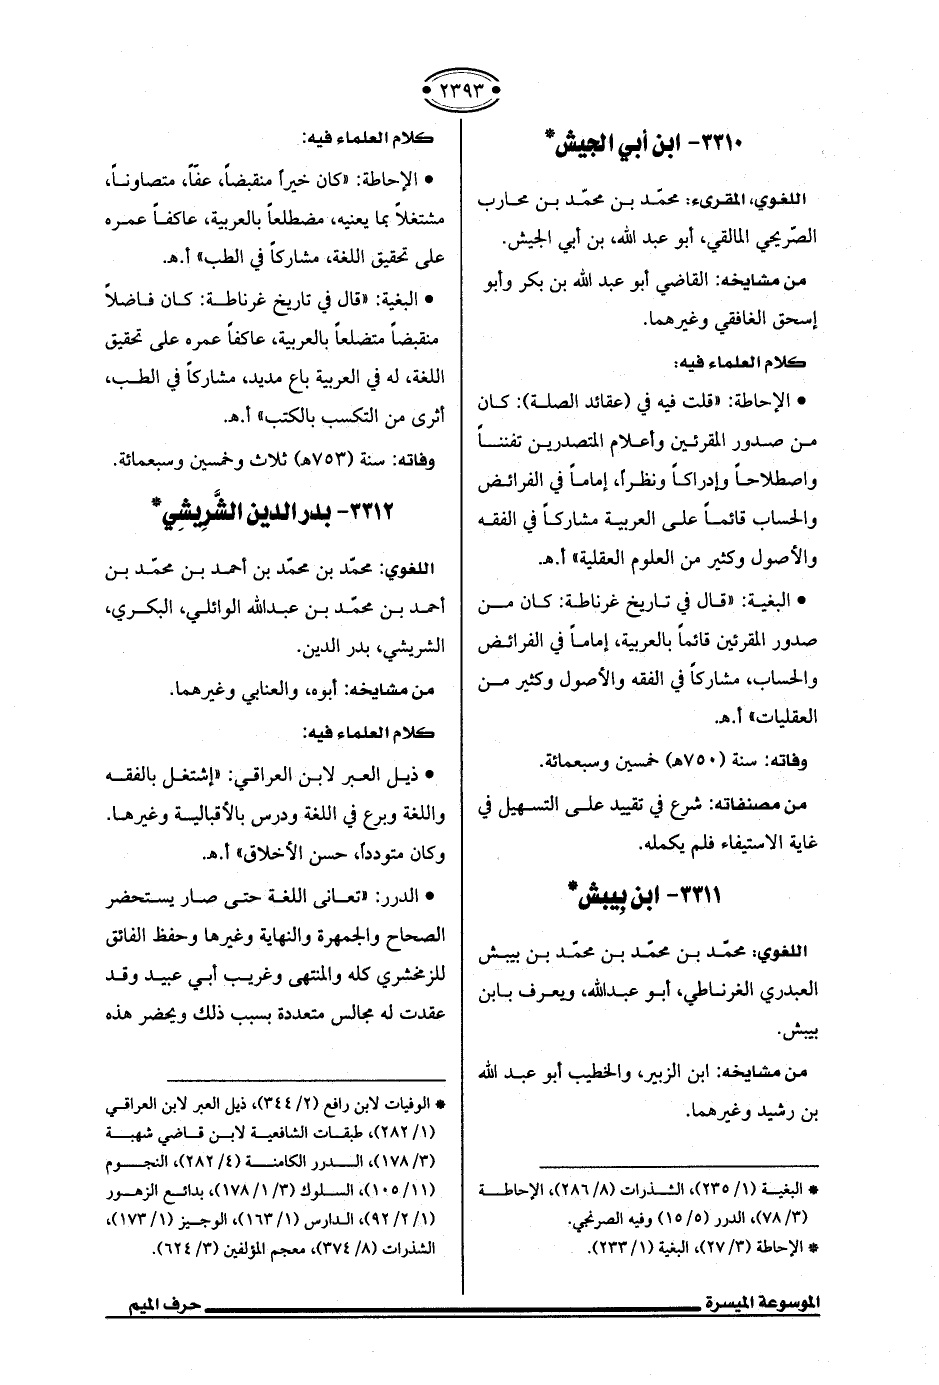 ٢٣٩٣
٣٣١٠- ابن أبي الجيش*
اللغوي، المقرىء: محمّد بن محمّد بن محارب
الصّريحي المالقي، أبو عبد الله، بن أبي الجيش.
من مشايخه: القاضي أبو عبد الله بن بكر وأبو
إسحق الغافقي وغيرهما.
كلام العلماء فيه:
• الإحاطة: «قلت فيه في (عقائد الصلة): كان
من صدور المقرئين وأعلام المتصدرين تفنناً
واصطلاحاً وإدراكاً ونظراً، إماماً في الفرائض
والحساب قائماً على العربية مشاركاً في الفقه
والأصول وكثير من العلوم العقلية» أ.هـ.
• البغية: «قال في تاريخ غرناطة: كان من
صدور المقرئين قائماً بالعربية، إماماً في الفرائض
والحساب، مشاركاً في الفقه والأصول وكثير من
العقليات» أ.هـ.
وفاته: سنة (٧٥٠هـ) خمسين وسبعمائة.
من مصنفاته: شرع في تقييد على التسهيل في
غاية الاستيفاء فلم يكمله.
٣٣١١- ابن بِيبش*
اللغوي: محمّد بن محمّد بن محمّد بن بيبش
العبدري الغرناطي، أبو عبدالله، ويعرف بابن
بيبش.
من مشايخه: ابن الزبير، والخطيب أبو عبد الله
بن رشيد وغيرهما.
* البغية (١/ ٢٣٥)، الشذرات (٨/ ٢٨٦)، الإحاطة
(٣/ ٧٨)، الدرر (٥/ ١٥) وفيه الصرنجي.
* الإحاطة (٣/ ٢٧)، البغية (١/ ٢٣٣).
كلام العلماء فيه:
• الإحاطة: «كان خيراً منقبضاً، عفّاً، متصاوناً،
مشتغلاً بما يعنيه، مضطلعاً بالعربية، عاكفاً عمره
على تحقيق اللغة، مشاركاً في الطب» أ.هـ.
• البغية: «قال في تاريخ غرناطة: كان فاضلاً
منقبضاً متضلعاً بالعربية، عاكفاً عمره على تحقيق
اللغة، له في العربية باع مديد، مشاركاً في الطب،
أثرى من التكسب بالكتب» أ.هـ.
وفاته: سنة (٧٥٣هـ) ثلاث وخمسين وسبعمائة.
٣٣١٢- بدر الدين الشَّرِيشِي*
اللغوي: محمّد بن محمّد بن أحمد بن محمّد بن
أحمد بن محمّد بن عبدالله الوائلي، البكري،
الشريشي، بدر الدين.
من مشايخه: أبوه، والعنابي وغيرهما.
كلام العلماء فيه:
• ذيل العبر لابن العراقي: «إشتغل بالفقه
واللغة وبرع في اللغة ودرس بالأقبالية وغيرها.
وكان متودداً، حسن الأخلاق» أ.هـ.
• الدرر: «تعانى اللغة حتى صار يستحضر
الصحاح والجمهرة والنهاية وغيرها وحفظ الفائق
للزمخشري كله والمنتهى وغريب أبي عبيد وقد
عقدت له مجالس متعددة بسبب ذلك ويحضر هذه
* الوفيات لابن رافع (٢/ ٣٤٤)، ذيل العبر لابن العراقي
(١/ ٢٨٢)، طبقات الشافعية لابن قاضي شهبة
(٣/ ١٧٨)، الدرر الكامنة (٤/ ٢٨٢)، النجوم
(١١/ ١٠٥)، السلوك (٣/ ١/ ١٧٨)، بدائع الزهور
(١/ ٢/ ٩٢)، الدارس (١/ ١٦٣)، الوجيز (١/ ١٧٣)،
الشذرات (٨/ ٣٧٤)، معجم المؤلفين (٣/ ٦٢٤).
الموسوعة الميسرة
حرف الميم